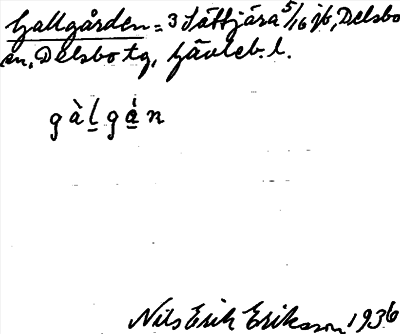 Gallgården = 3 Sättjära 5/16 jb, Delsbo
sn, Delsbo tg, Gävleb. l.
gàl̲gá̲n
Nils Erik Eriksson 1936